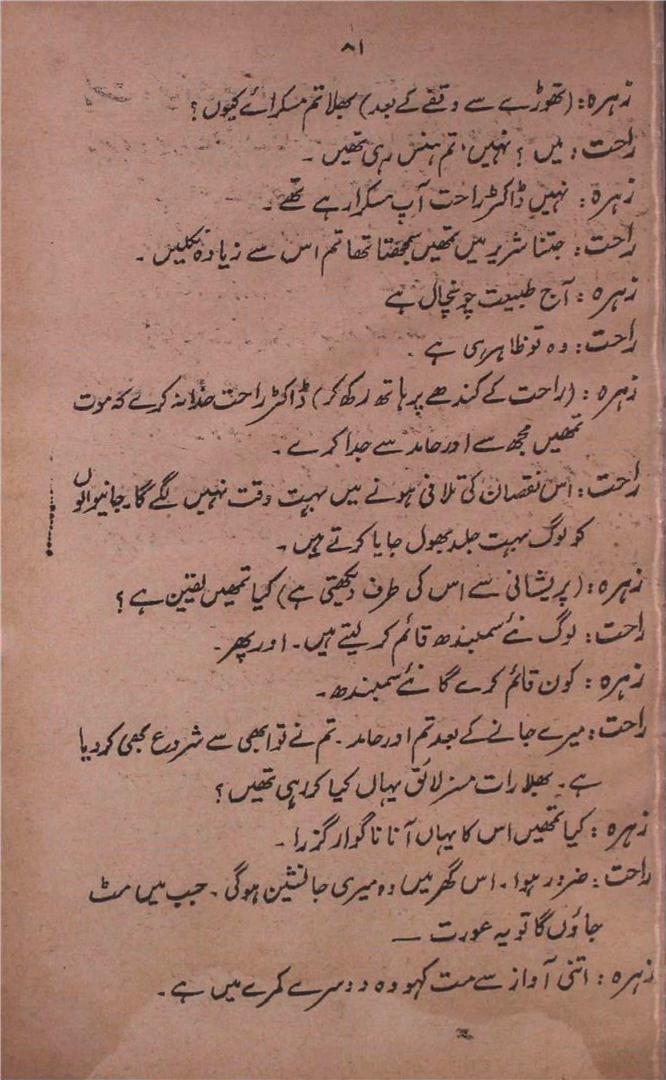 ۸۱
زہرہ: (تھوڑے سے وقفے کے بعد) بھلا تم مسکرائے کیوں؟
راحت: میں؟ نہیں، تم ہنس رہی تھیں۔
زہرہ: نہیں ڈاکٹر راحت آپ مسکرا رہے تھے۔
راحت: جتنا شریر میں تمھیں سمجھتا تھا تم اس سے زیادہ نکلیں۔
زہرہ: آج طبیعت چونچال ہے
راحت: وہ تو ظاہر ہی ہے۔
زہرہ: (راحت کے کندھے پر ہاتھ رکھ کر) ڈاکٹر راحت خدا نہ کرے کہ موت
تمھیں مجھ سے اور حامد سے جدا کرے۔
راحت: اس نقصان کی تلافی ہونے میں بہت وقت نہیں لگے گا۔ جانیوالوں
کو لوگ بہت جلد بھول جایا کرتے ہیں۔
زہرہ: (پریشانی سے اس کی طرف دیکھتی ہے) کیا تمھیں یقین ہے؟
راحت: لوگ نئے سمبندھ قائم کر لیتے ہیں۔ اور پھر۔
زہرہ: کون قائم کرے گا نئے سمبندھ۔
راحت: میرے جانے کے بعد تم اور حامد۔ تم نے تو ابھی سے شروع بھی کر دیا
ہے۔ بھلا رات مسز لائق یہاں کیا کر رہی تھیں؟
زہرہ: کیا تمھیں اس کا یہاں آنا ناگوار گزرا۔
راحت: ضرور ہوا۔ اس گھر میں وہ میری جانشین ہوگی۔ جب میں مٹ
جاؤں گا تو یہ عورت —
زہرہ: اتنی آواز سے مت کہو وہ دوسرے کمرے میں ہے۔